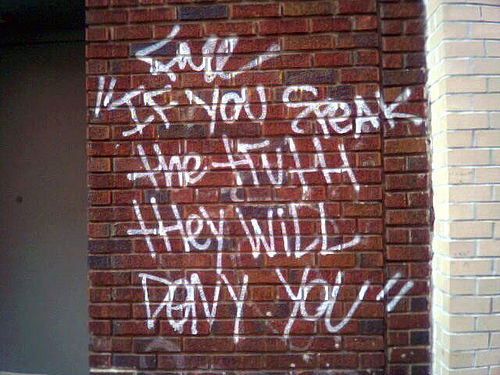 "IF YOU SPEAK
the truth
they WiLL
DANY YOU"